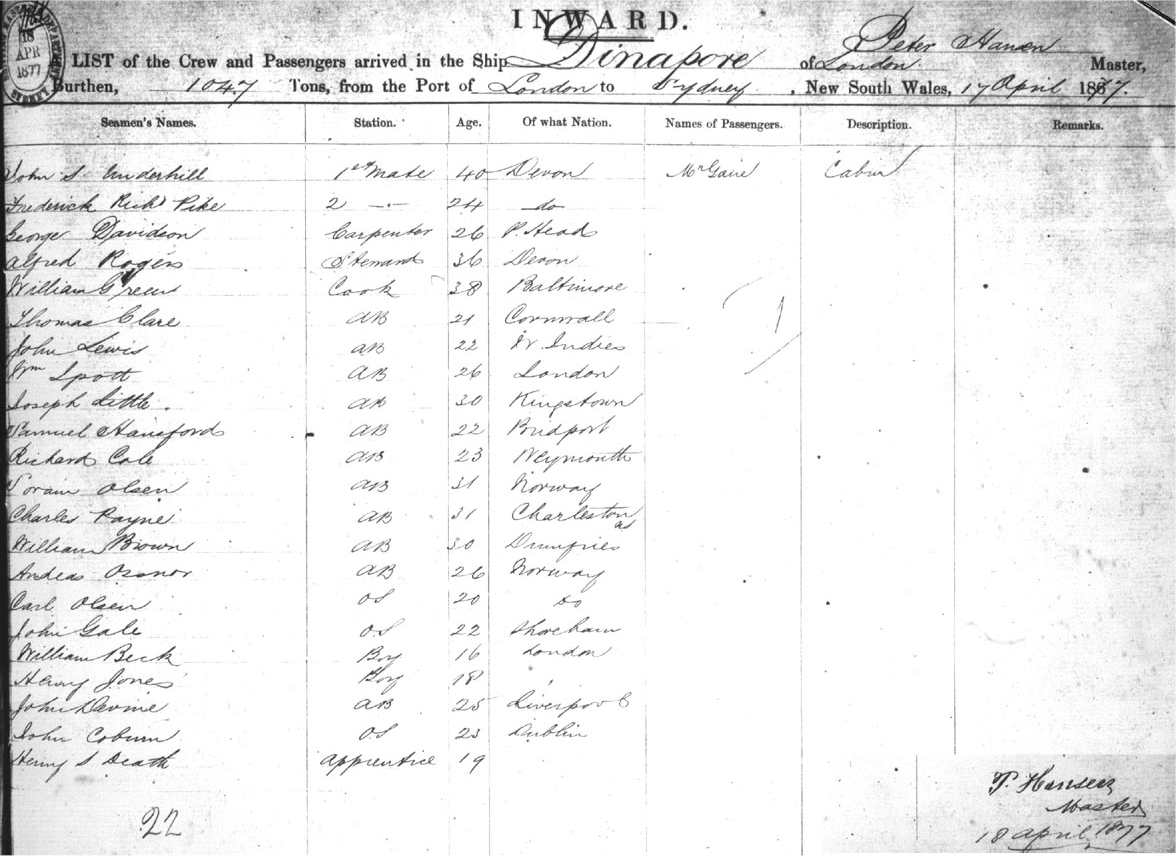 18
APR
1877
SYDNEY
INWARD.
LIST of the Crew and Passengers arrived in the Ship Dinapore of London Peter Hansen Master,
Burthen, 1047 Tons, from the Port of London to Sydney, New South Wales, 17 April 1877.
Seamen's Names. Station. Age. Of what Nation. Names of Passengers. Description. Remarks.
John S Underhill 1st Mate 40 Devon Mr Cabin
Frederick Richd Pike 2 —"— 24 do
George Davidson Carpenter 26 P. Head
Alfred Rogers Steward 36 Devon
William Green Cook 38 Baltimore
Thomas Clare AB 21 Cornwall
John Lewis AB 22 W Indies
Wm Spott AB 26 London
Joseph Little. AB 30 Kingstown
Samuel Hansford AB 22 Bridport
Richard Cole AB 23 Weymouth
Olsen AB 31 Norway
Charles Payne AB 31 Charleston
William Brown AB 30 Dumfries
Andeas AB 26 Norway
Carl Olsen OS 20 do
John Gale OS 22 Shoreham
William Beck Boy 16 London
Henry Jones Boy 18
John Devine AB 25 Liverpool
John Coburn OS 23 Dublin
Henry S Death Apprentice 19
22
P. Hansen
Master
18 April 1877